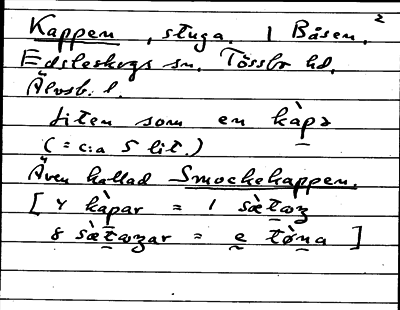 2
Kappen, stuga. 1 Båsen,
Edsleskogs sn. Tössbo hd,
Älvsb. l.
Liten som en kàpa
(= c:a 5 lit.)
Även kallad Smockekappen.
[ 4 kàpar = 1
8 = e tø̀na ]